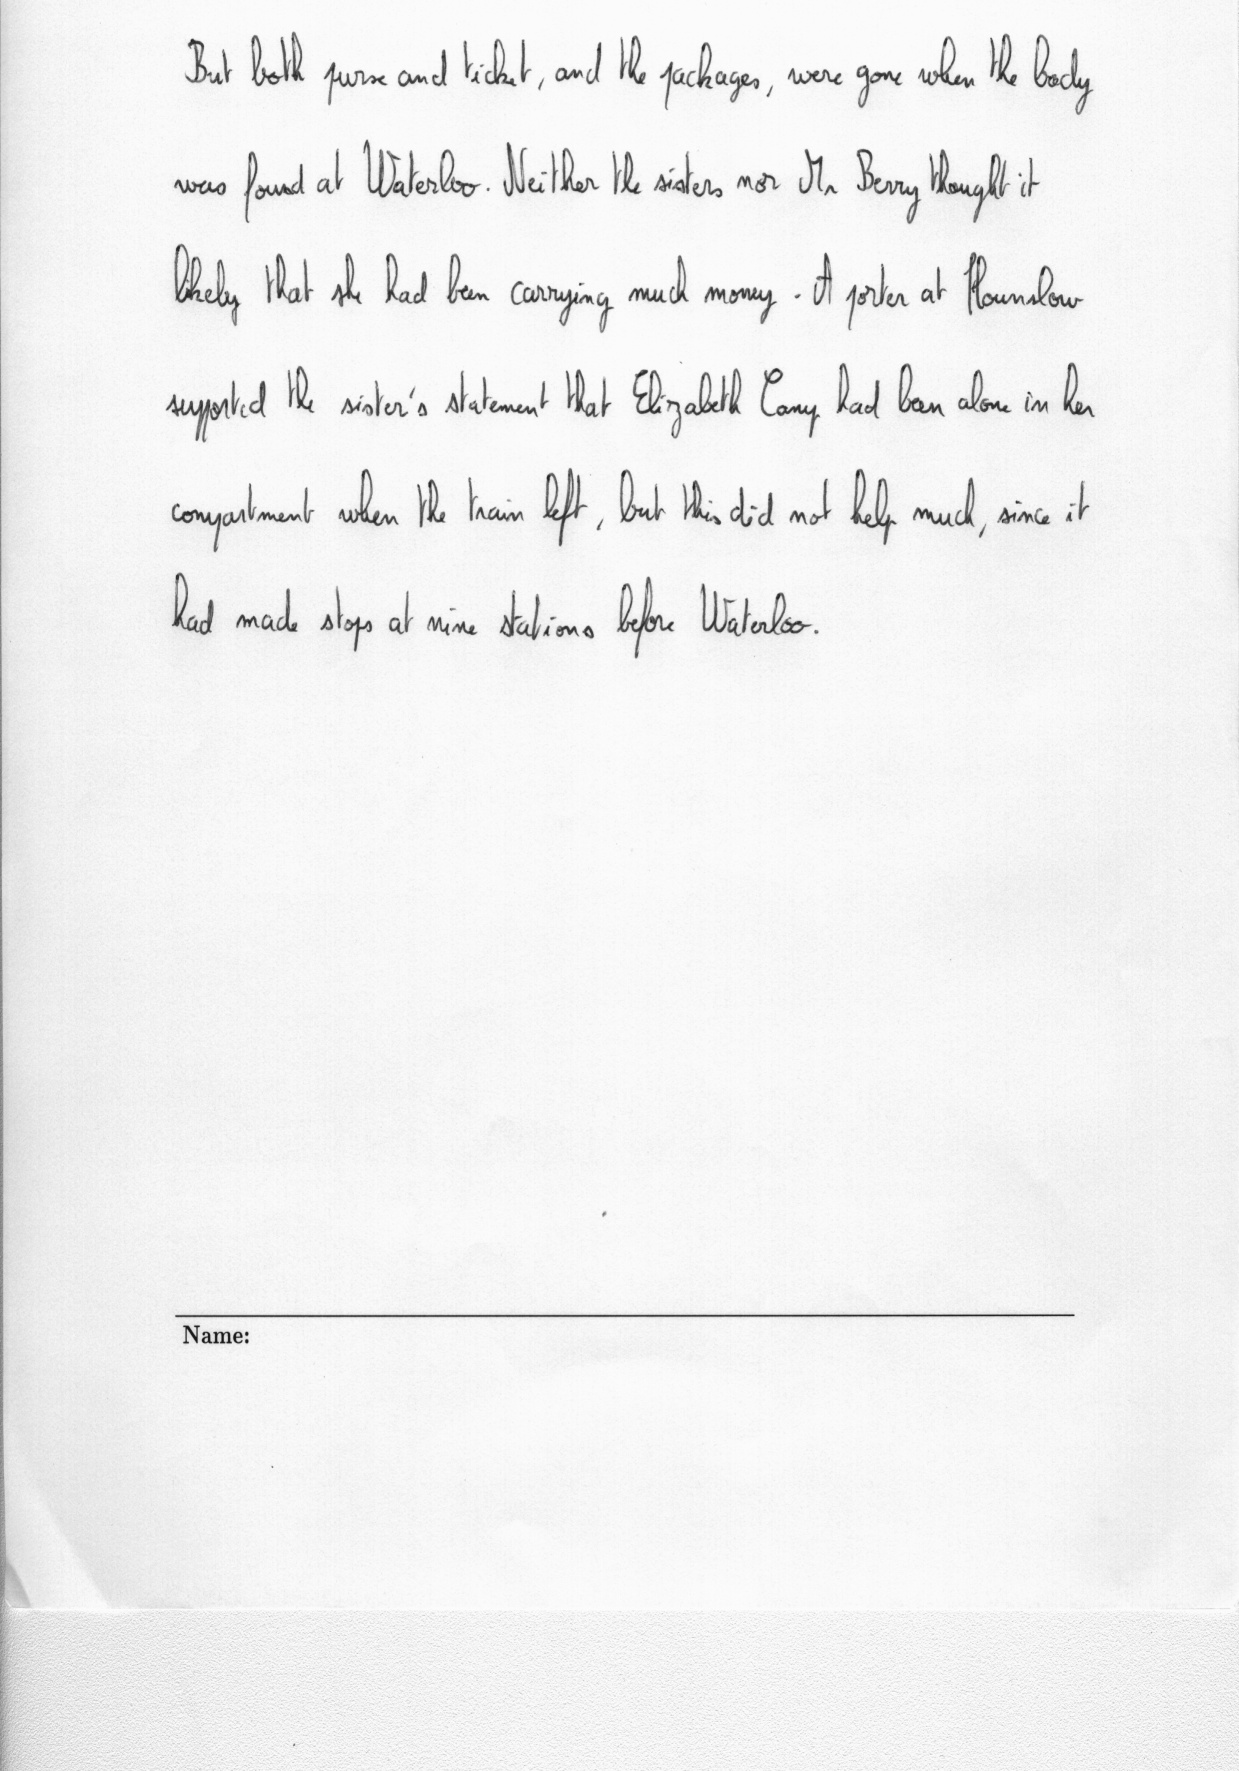 But both purse and ticket, and the packages, were gone when the body
was found at Waterloo. Neither the sisters nor Mr Berry thought it
likely that she had been carrying much money. A porter at Hounslow
supported the sister's statement that Elizabeth Camp had been alone in her
compartment when the train left, but this did not help much, since it
had made stops at nine stations before Waterloo.
Name: